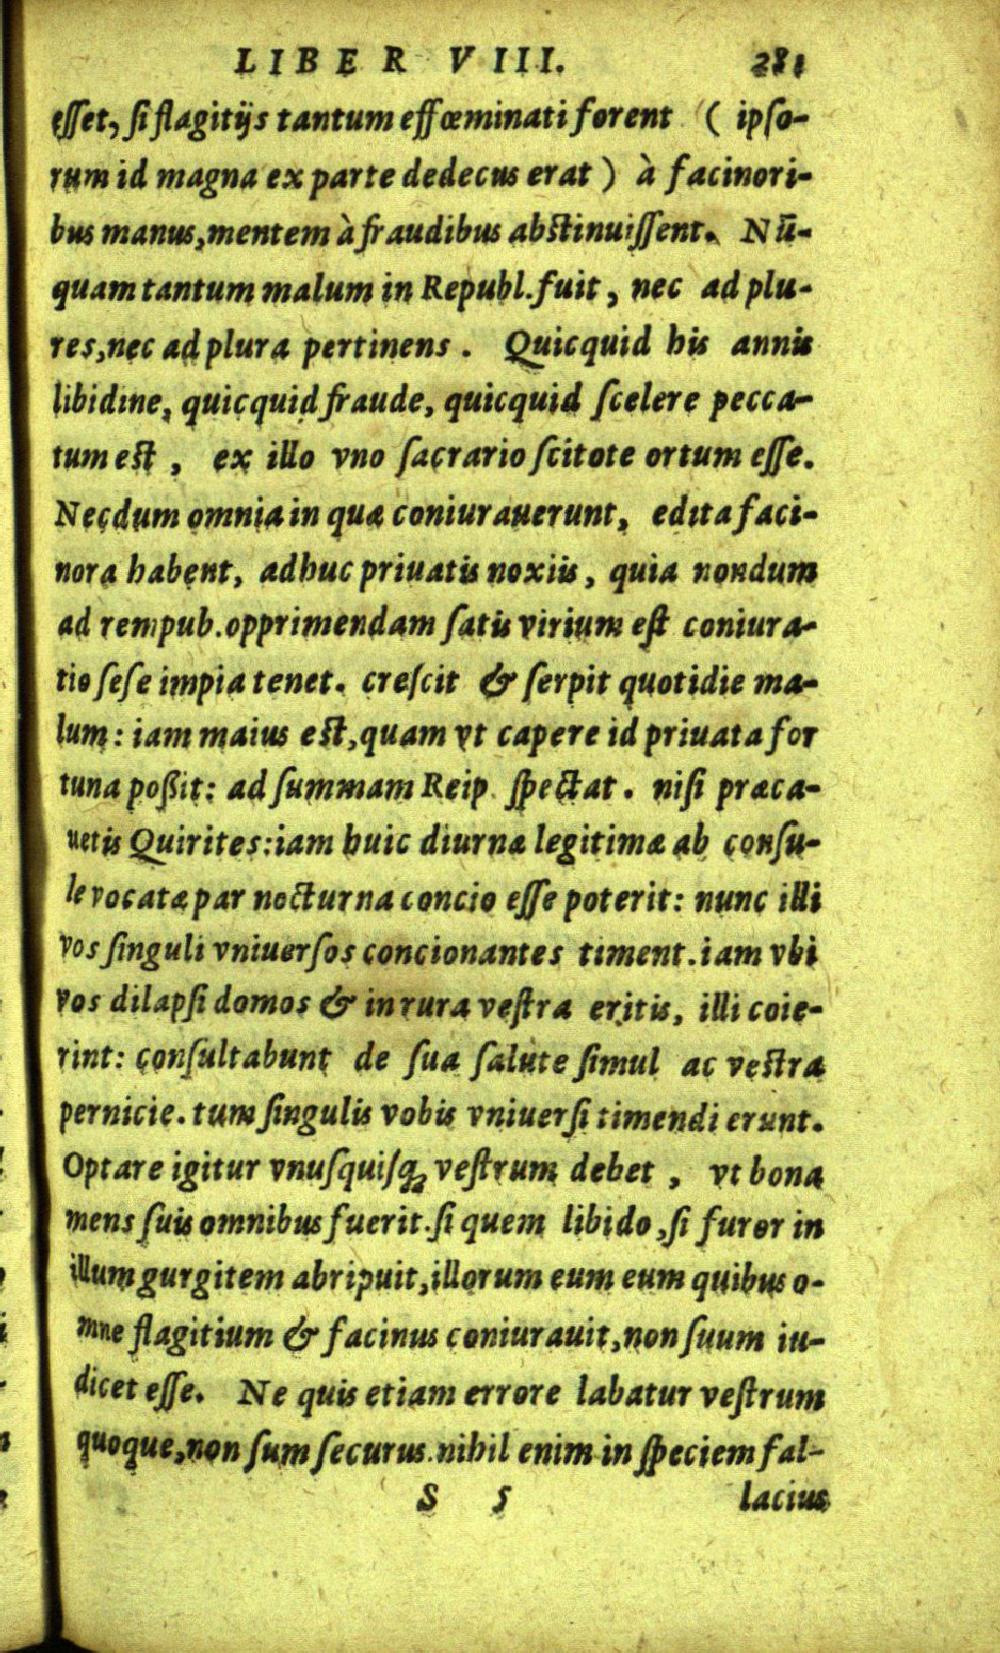 LIBER VIII. 281
esset, si flagitijs tantum effœminati forent ( ipso-
rum id magna ex parte dedecus erat ) à facinori-
bus manus, mentem à fraudibus abstinuissent. Nū-
quam tantum malum in Republ. fuit, nec ad plu-
res, nec ad plura pertinens. Quicquid his annis
libidine, quicquid fraude, quicquid scelere pecca-
tum est, ex illo vno sacrario scitote ortum esse.
Necdum omnia in quæ coniurauerunt, edita faci-
nora habent, adhuc priuatis noxiis, quia nondum
ad rempub. opprimendam satis virium est coniura-
tio sese impia tenet. crescit & serpit quotidie ma-
lum: iam maius est, quam vt capere id priuata for
tuna possit: ad summam Reip. spectat. nisi præca-
uetis Quirites: iam huic diurnæ legitimæ ab consu-
le vocatæ par nocturna concio esse poterit: nunc illi
vos singuli vniuersos concionantes timent. iam vbi
vos dilapsi domos & in rura vestra eritis, illi coie-
rint: consultabunt de sua salute simul ac vestra
pernicie. tum singulis vobis vniuersi timendi erunt.
Optare igitur vnusquisq; vestrum debet, vt bona
mens suis omnibus fuerit. si quem libido, si furor in
illum gurgitem abripuit, illorum eum eum quibus o-
mne flagitium & facinus coniurauit, non suum iu-
dicet esse. Ne quis etiam errore labatur vestrum
quoque, non sum securus. nihil enim in speciem fal-
S 5 lacius